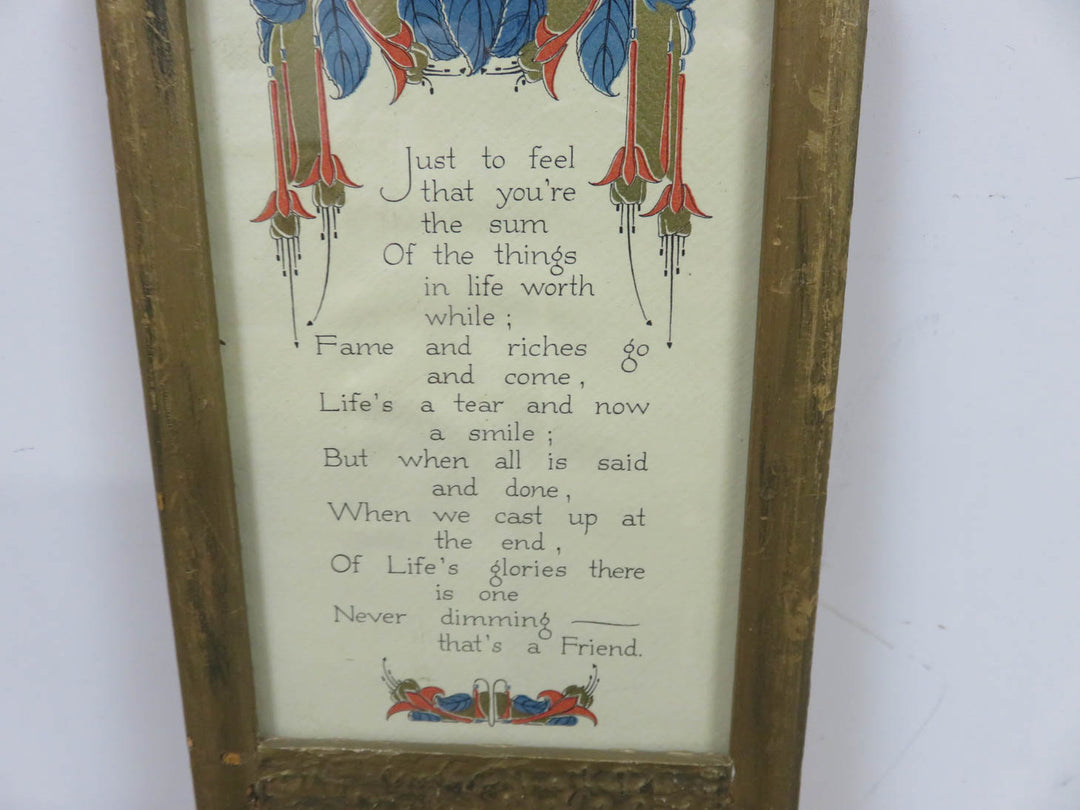 Just to feel
that you're
the sum
Of the things
in life worth
while ;
Fame and riches go
and come ,
Life's a tear and now
a smile ;
But when all is said
and done ,
When we cast up at
the end ,
Of Life's glories there
is one
Never dimming —
that's a Friend.